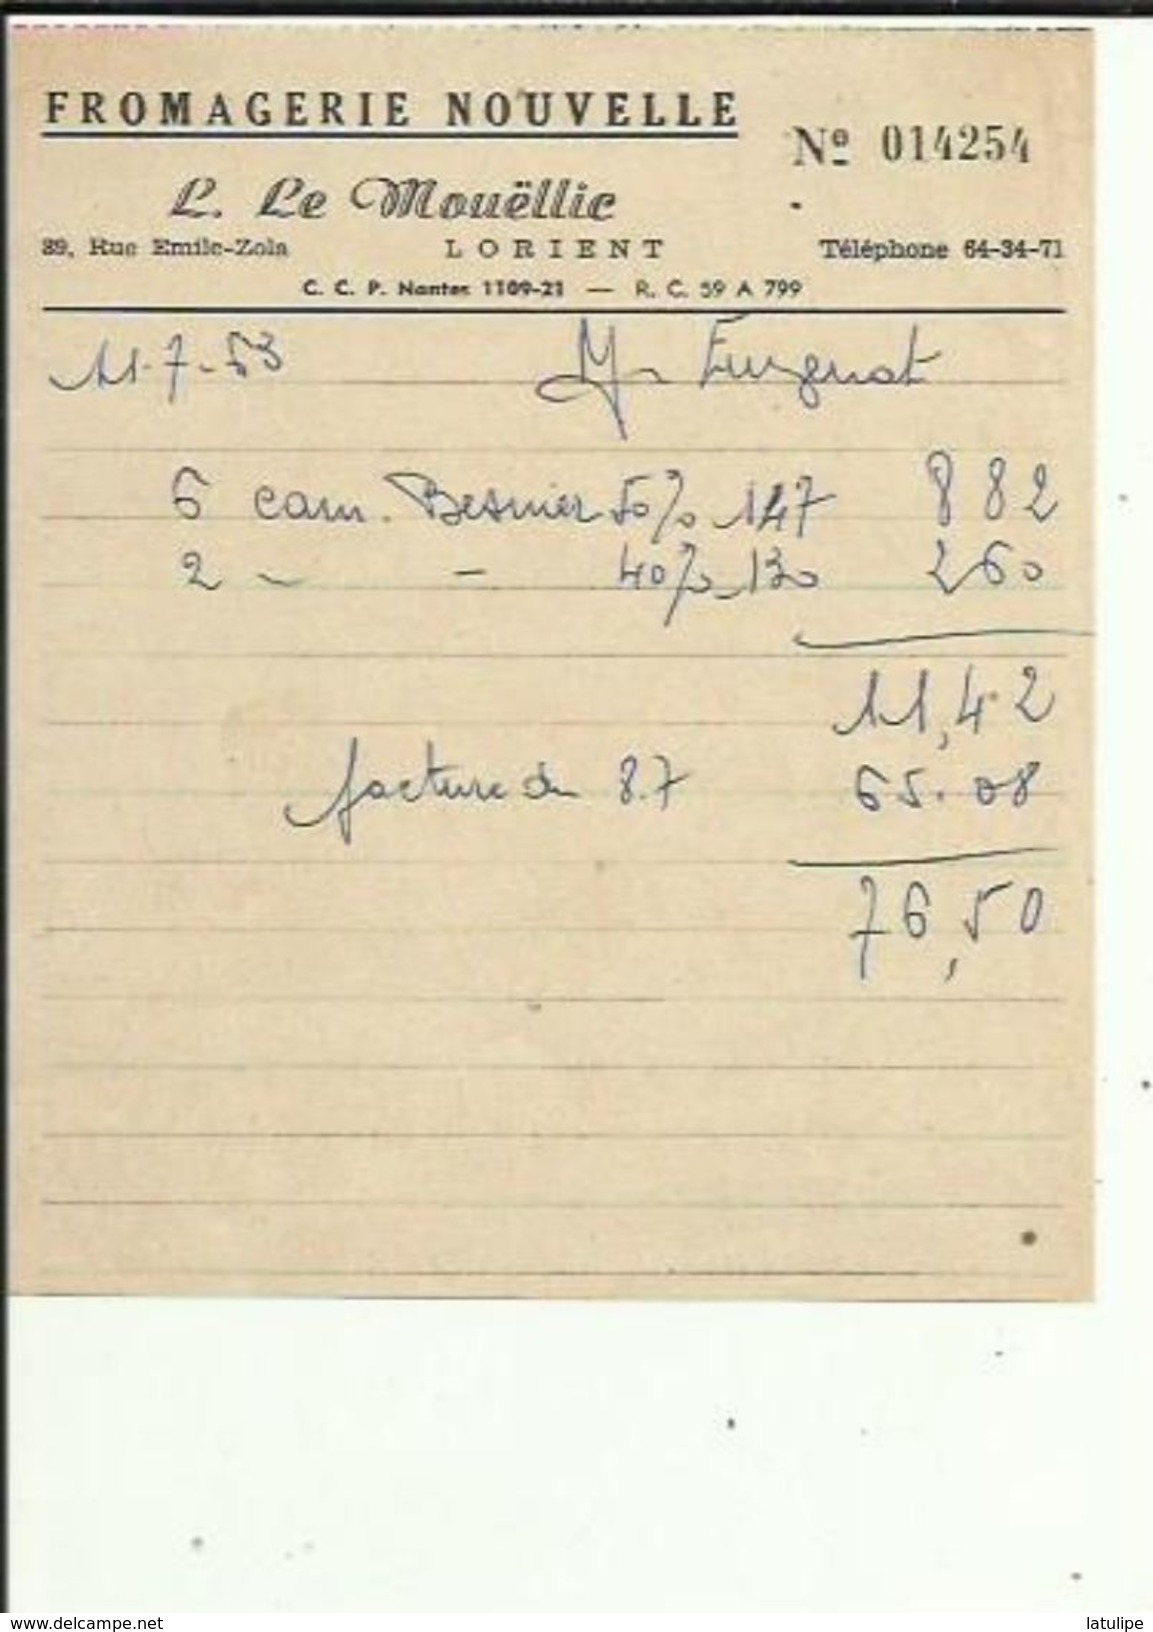 FROMAGERIE NOUVELLE
Nº 014254
L. Le Mouëllic
89, Rue Emile-Zola LORIENT Téléphone 64-34-71
C. C. P. Nantes 1109-21 — R. C. 59 A 799
11-7-53 Mr
6 cam. Besnier 50% 147 882
2 - - 40% 130 260
11,42
facture du 8.7 65.08
76,50
www.delcampe.net
latulipe